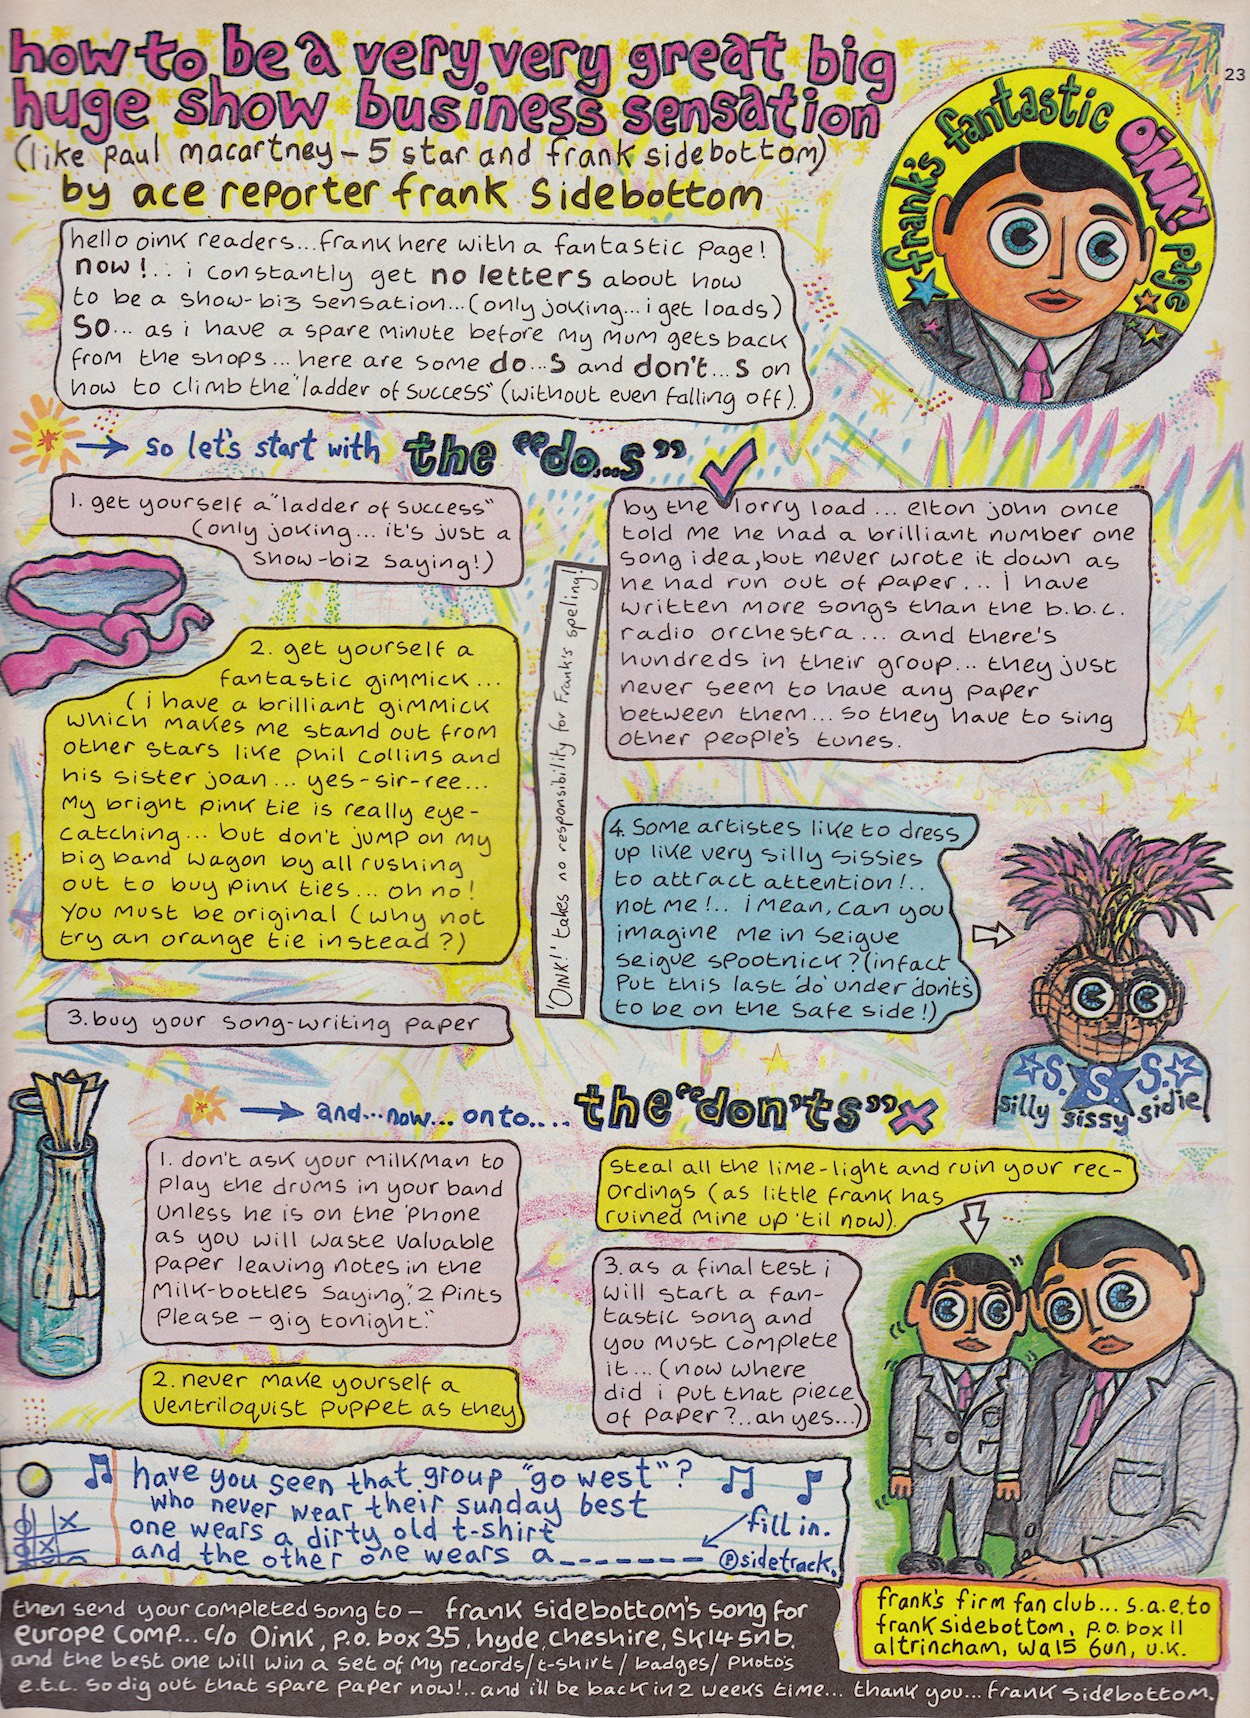 how to be a very very great big
huge show business sensation
(like paul macartney – 5 star and frank sidebottom)
by ace reporter frank sidebottom
23
frank's fantastic OiNK! page
hello oink readers...frank here with a fantastic page!
now!.. i constantly get no letters about how
to be a show-biz sensation...(only joking...i get loads)
so... as i have a spare minute before my mum gets back
from the shops... here are some do...s and don't...s on
how to climb the "ladder of success" (without even falling off).
so let's start with the "do...s"
1. get yourself a "ladder of success"
(only joking... it's just a
show-biz saying!)
2. get yourself a
fantastic gimmick...
(i have a brilliant gimmick
which makes me stand out from
other stars like phil collins and
his sister joan... yes-sir-ree...
my bright pink tie is really eye-
catching... but don't jump on my
big band wagon by all rushing
out to buy pink ties... oh no!
you must be original (why not
try an orange tie instead?)
3. buy your song-writing paper
by the lorry load... elton john once
told me he had a brilliant number one
song idea, but never wrote it down as
he had run out of paper... i have
written more songs than the b.b.c.
radio orchestra... and there's
hundreds in their group... they just
never seem to have any paper
between them... so they have to sing
other people's tunes.
'OiNK!' takes no responsibility for Frank's speling!
4. some artistes like to dress
up like very silly sissies
to attract attention!..
not me!.. i mean, can you
imagine me in seigue
seigue spootnick? (infact
put this last 'do' under 'don'ts'
to be on the safe side!)
S. S. S.
silly sissy sidie
and...now...onto.... the "don'ts" x
1. don't ask your milkman to
play the drums in your band
unless he is on the 'phone
as you will waste valuable
paper leaving notes in the
milk-bottles saying, "2 pints
please – gig tonight."
2. never make yourself a
ventriloquist puppet as they
steal all the lime-light and ruin your rec-
ordings (as little frank has
ruined mine up 'til now).
3. as a final test i
will start a fan-
tastic song and
you must complete
it... (now where
did i put that piece
of paper?..ah yes...)
have you seen that group "go west"?
who never wear their sunday best
one wears a dirty old t-shirt
and the other one wears a_______
fill in.
Ⓟsidetrack.
then send your completed song to – frank sidebottom's song for
europe comp... c/o Oink, p.o. box 35, hyde, cheshire, SK14 5nb.
and the best one will win a set of my records/t-shirt/badges/photo's
e.t.c. so dig out that spare paper now!.. and i'll be back in 2 weeks time... thank you... frank sidebottom.
frank's firm fan club... s.a.e. to
frank sidebottom, p.o. box 11
altrincham, wa15 6un, u.k.